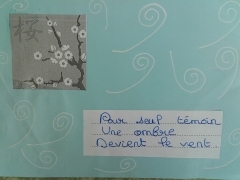 桜
Pour seul témoin
Une ombre
Devient le vent...